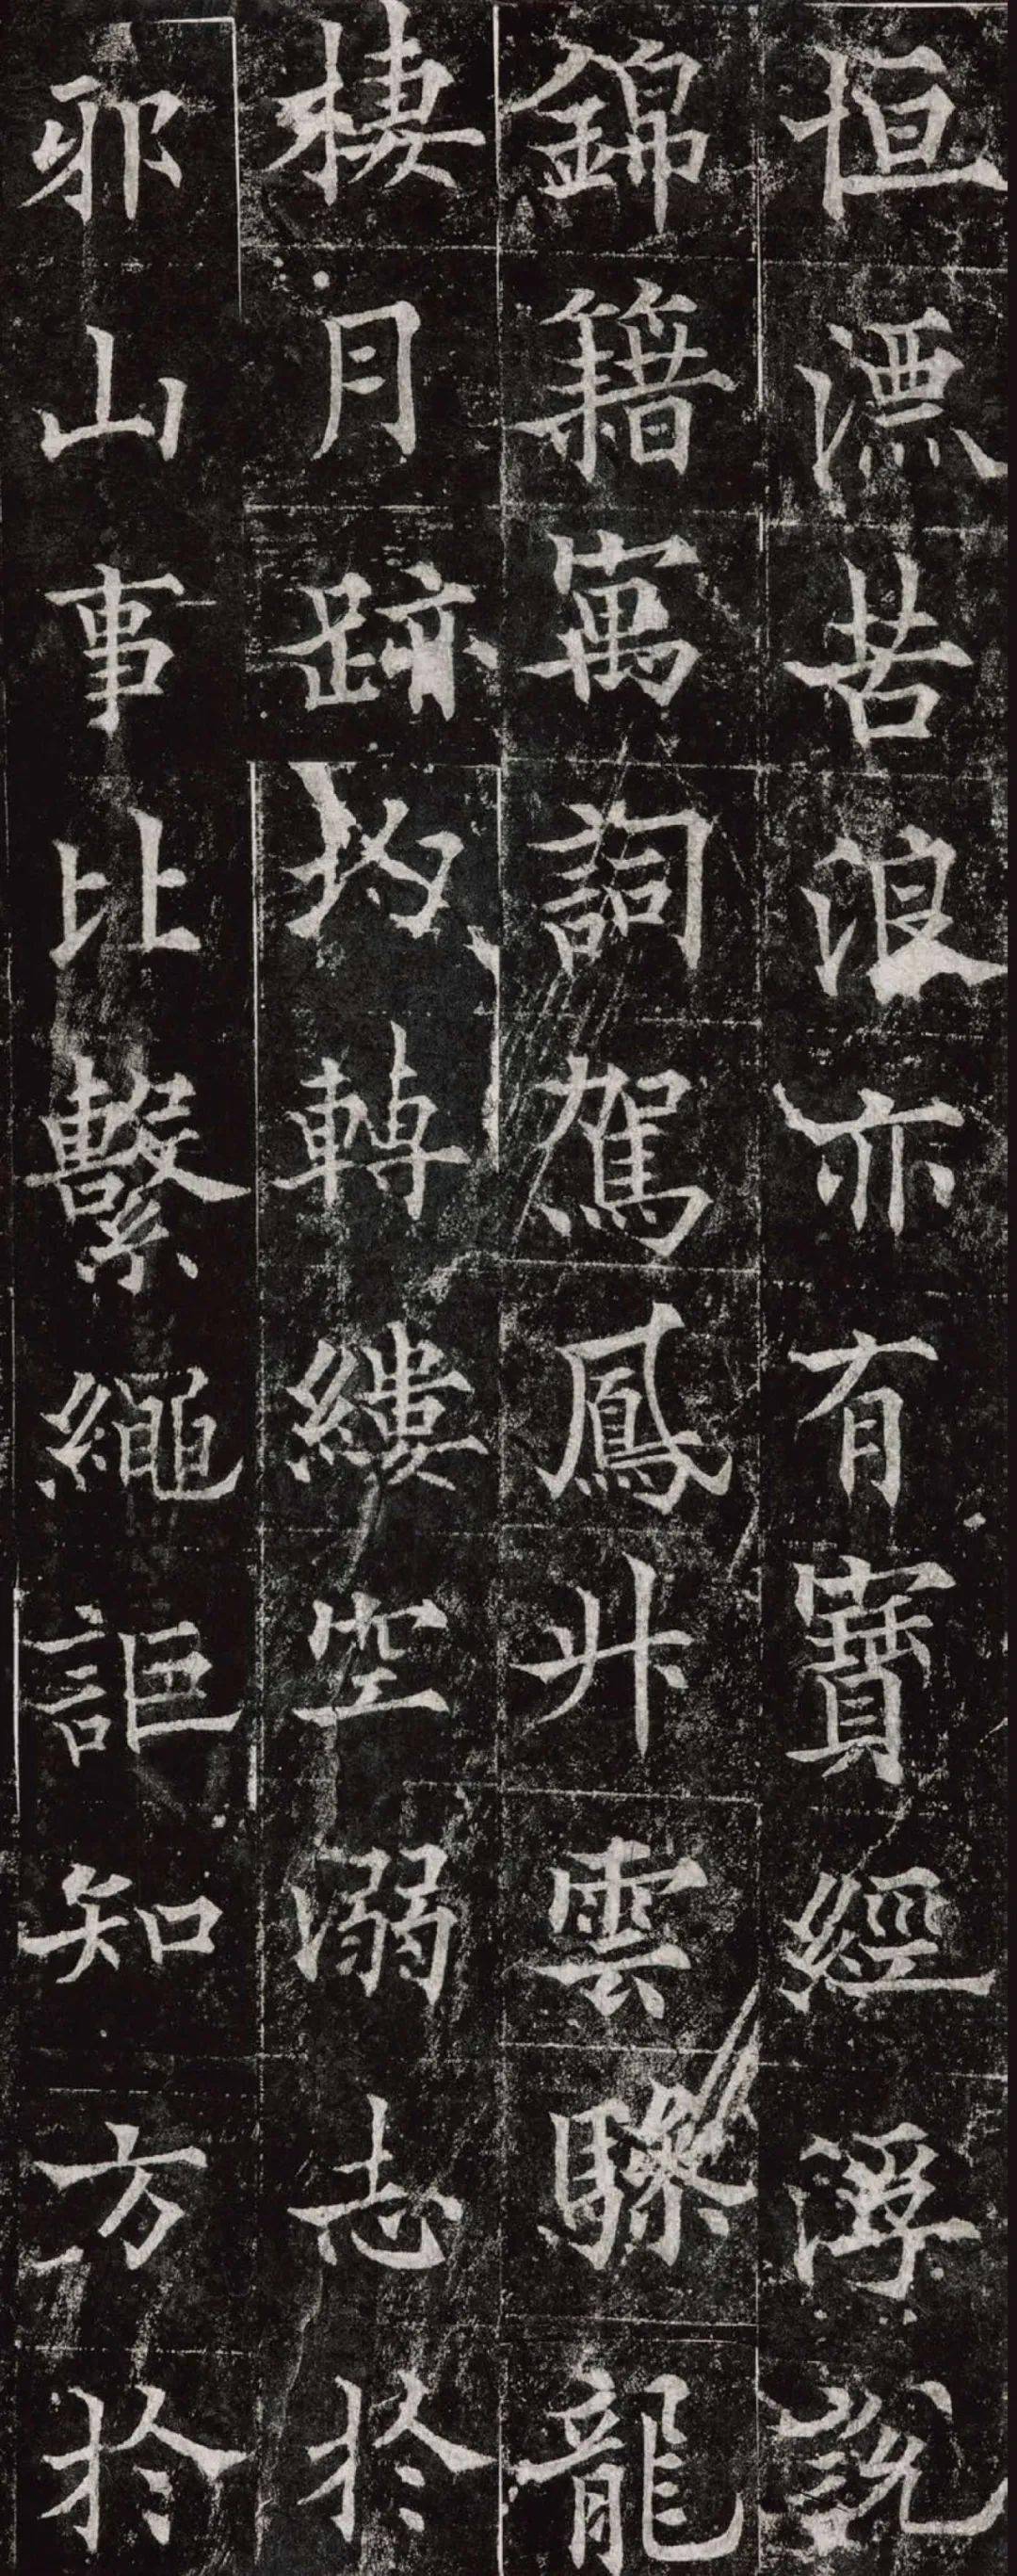 恒漂苦浪亦有寶經浮說
錦籍寓詞駕鳳升雲驂龍
棲月跡均轉縷空溺志於
邪山事比繫繩詎知方於